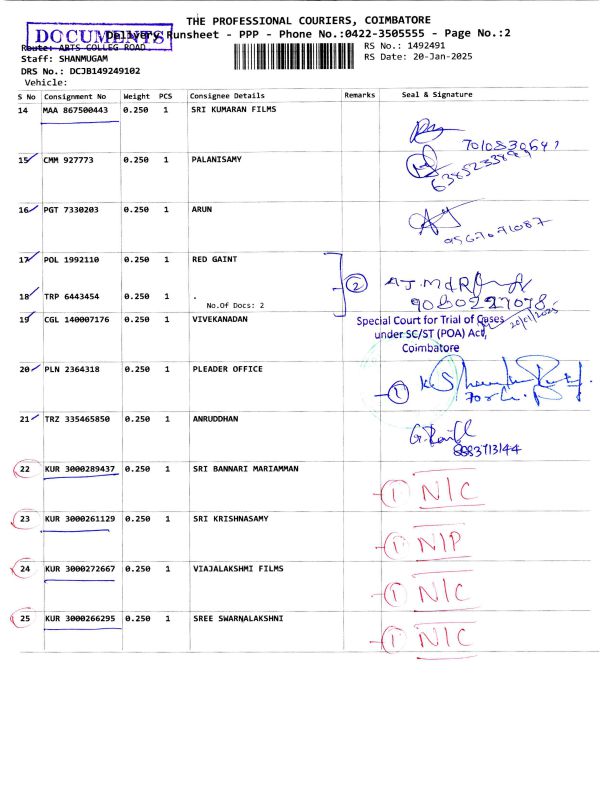 THE PROFESSIONAL COURIERS, COIMBATORE
DOCUMENTS
Delivery Runsheet - PPP - Phone No.:0422-3505555 - Page No.:2
Route: ARTS COLLEG ROAD
RS No.: 1492491
Staff: SHANMUGAM
RS Date: 20-Jan-2025
DRS No.: DCJB149249102
Vehicle:
S No Consignment No Weight PCS Consignee Details Remarks Seal & Signature
14 MAA 867500443 0.250 1 SRI KUMARAN FILMS
15 CMM 927773 0.250 1 PALANISAMY
16 PGT 7330203 0.250 1 ARUN
17 POL 1992110 0.250 1 RED GAINT
2
18 TRP 6443454 0.250 1 .
No.Of Docs: 2
9080227078
19 CGL 140007176 0.250 1 VIVEKANADAN
Special Court for Trial of Cases
under SC/ST (POA) Act,
Coimbatore
20/01/2025
20 PLN 2364318 0.250 1 PLEADER OFFICE
1
21 TRZ 335465850 0.250 1 ANRUDDHAN
22 KUR 3000289437 0.250 1 SRI BANNARI MARIAMMAN
1 N/C
23 KUR 3000261129 0.250 1 SRI KRISHNASAMY
1 N/P
24 KUR 3000272667 0.250 1 VIAJALAKSHMI FILMS
1 N/C
25 KUR 3000266295 0.250 1 SREE SWARNALAKSHNI
1 N/C